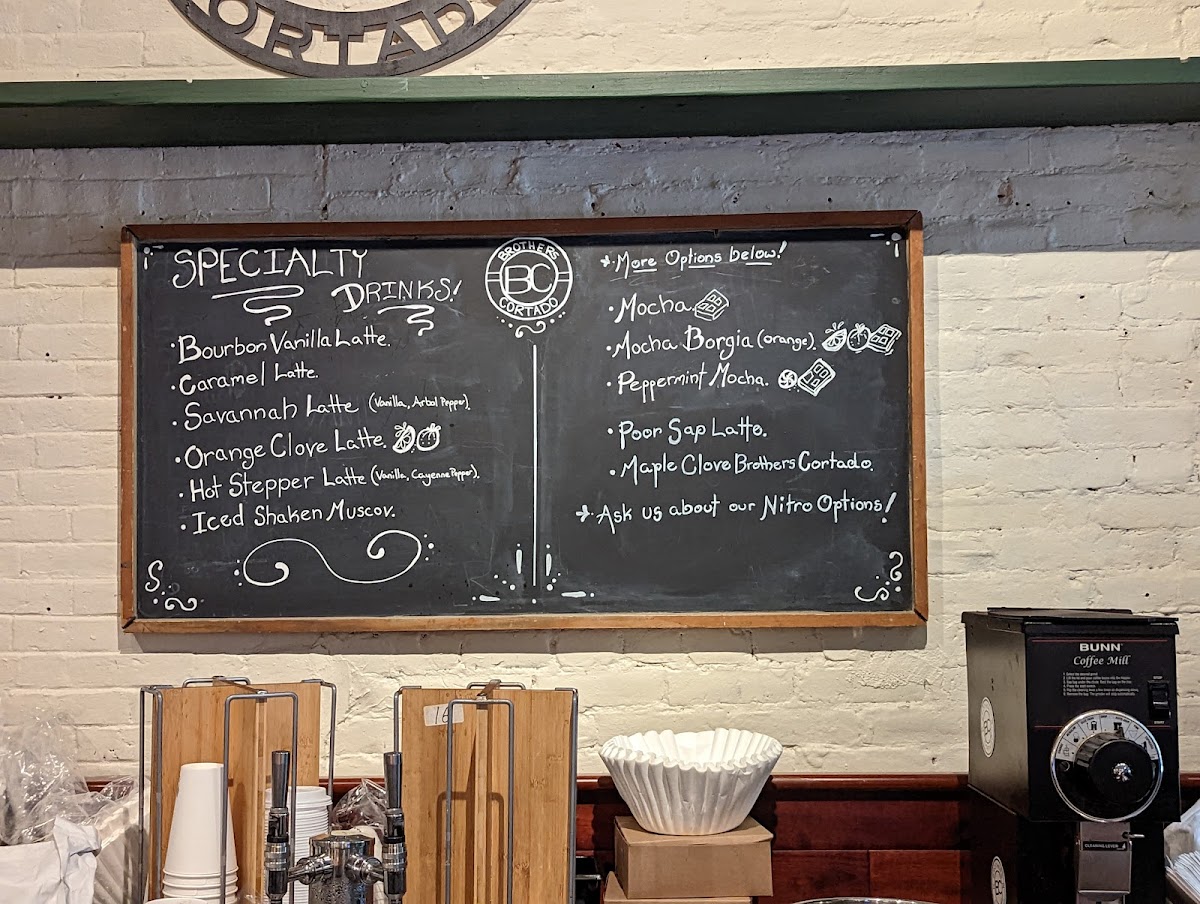 CORTADO
SPECIALTY
DRINKS!
· Bourbon Vanilla Latte.
· Caramel Latte.
· Savannah Latte (Vanilla, Arbol Pepper).
· Orange Clove Latte.
· Hot Stepper Latte (Vanilla, Cayenne Pepper).
· Iced Shaken Muscov.
BROTHERS
BC
CORTADO
More Options below!
· Mocha
· Mocha Borgia (orange).
· Peppermint Mocha.
· Poor Sap Latte.
· Maple Clove Brothers Cortado.
Ask us about our Nitro Options!
16
BUNN
Coffee Mill
CLEANING LEVER
BC